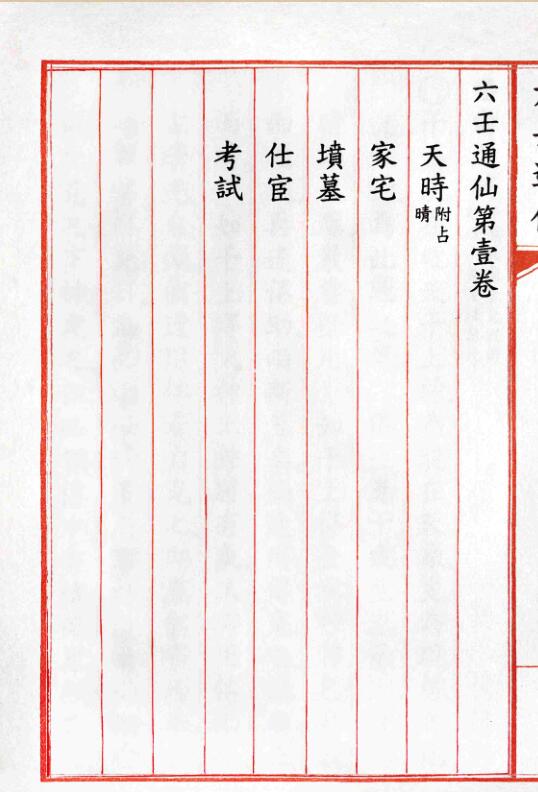 六壬通仙第壹卷
天時附占晴
家宅
墳墓
仕宦
考試